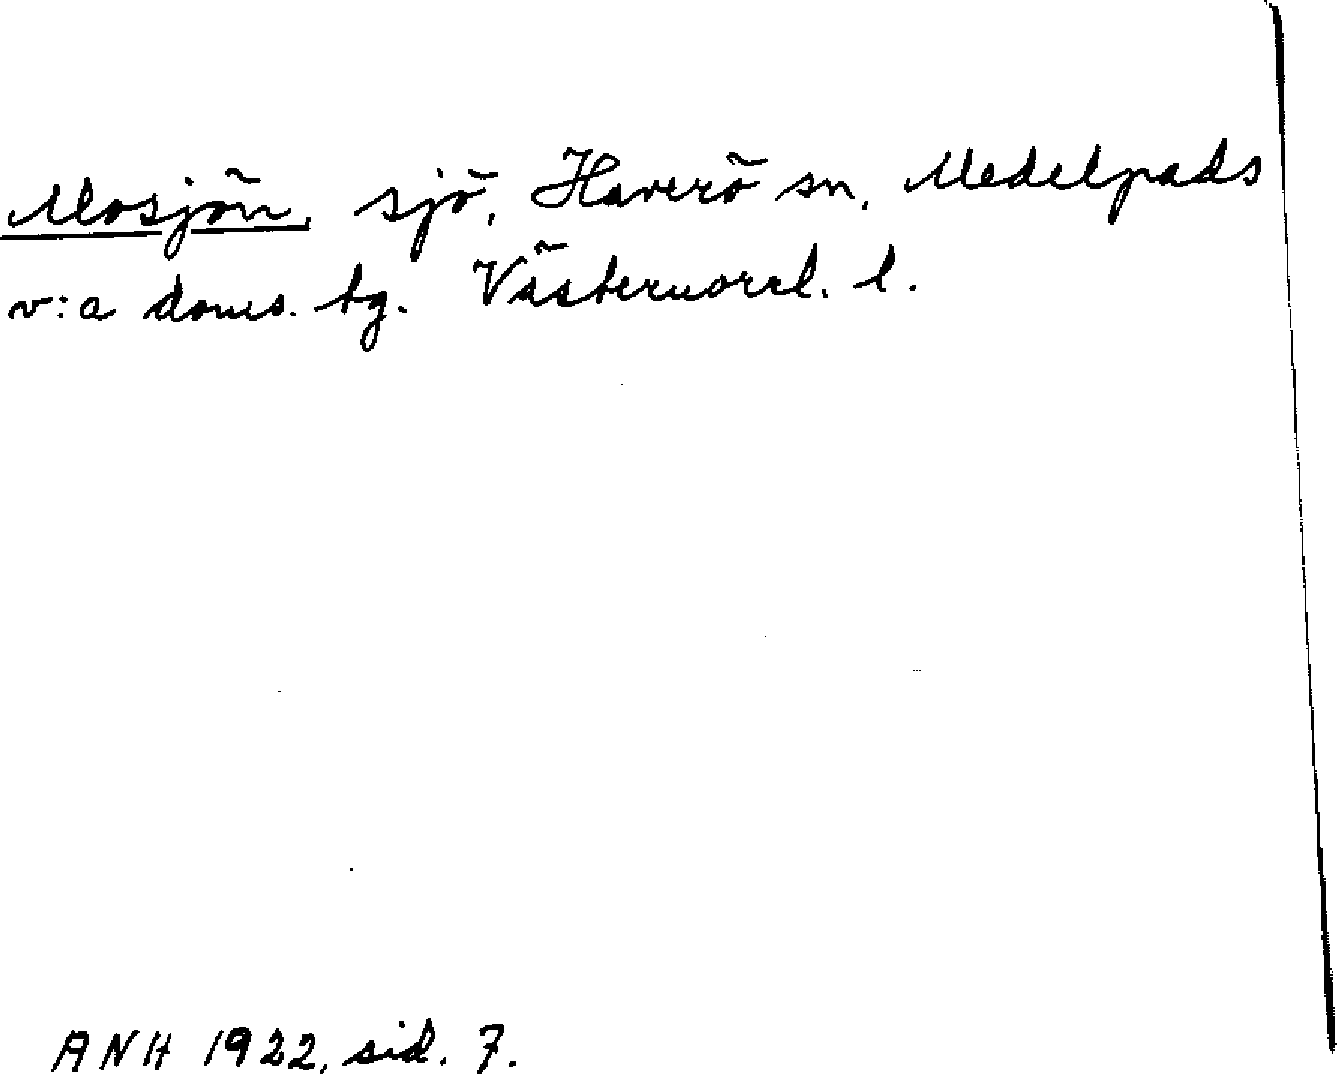 Mosjön, sjö, Haverö sn, Medelpads
v:a doms. tg. Västernorrl. l.
ANH 1922, sid. 7.